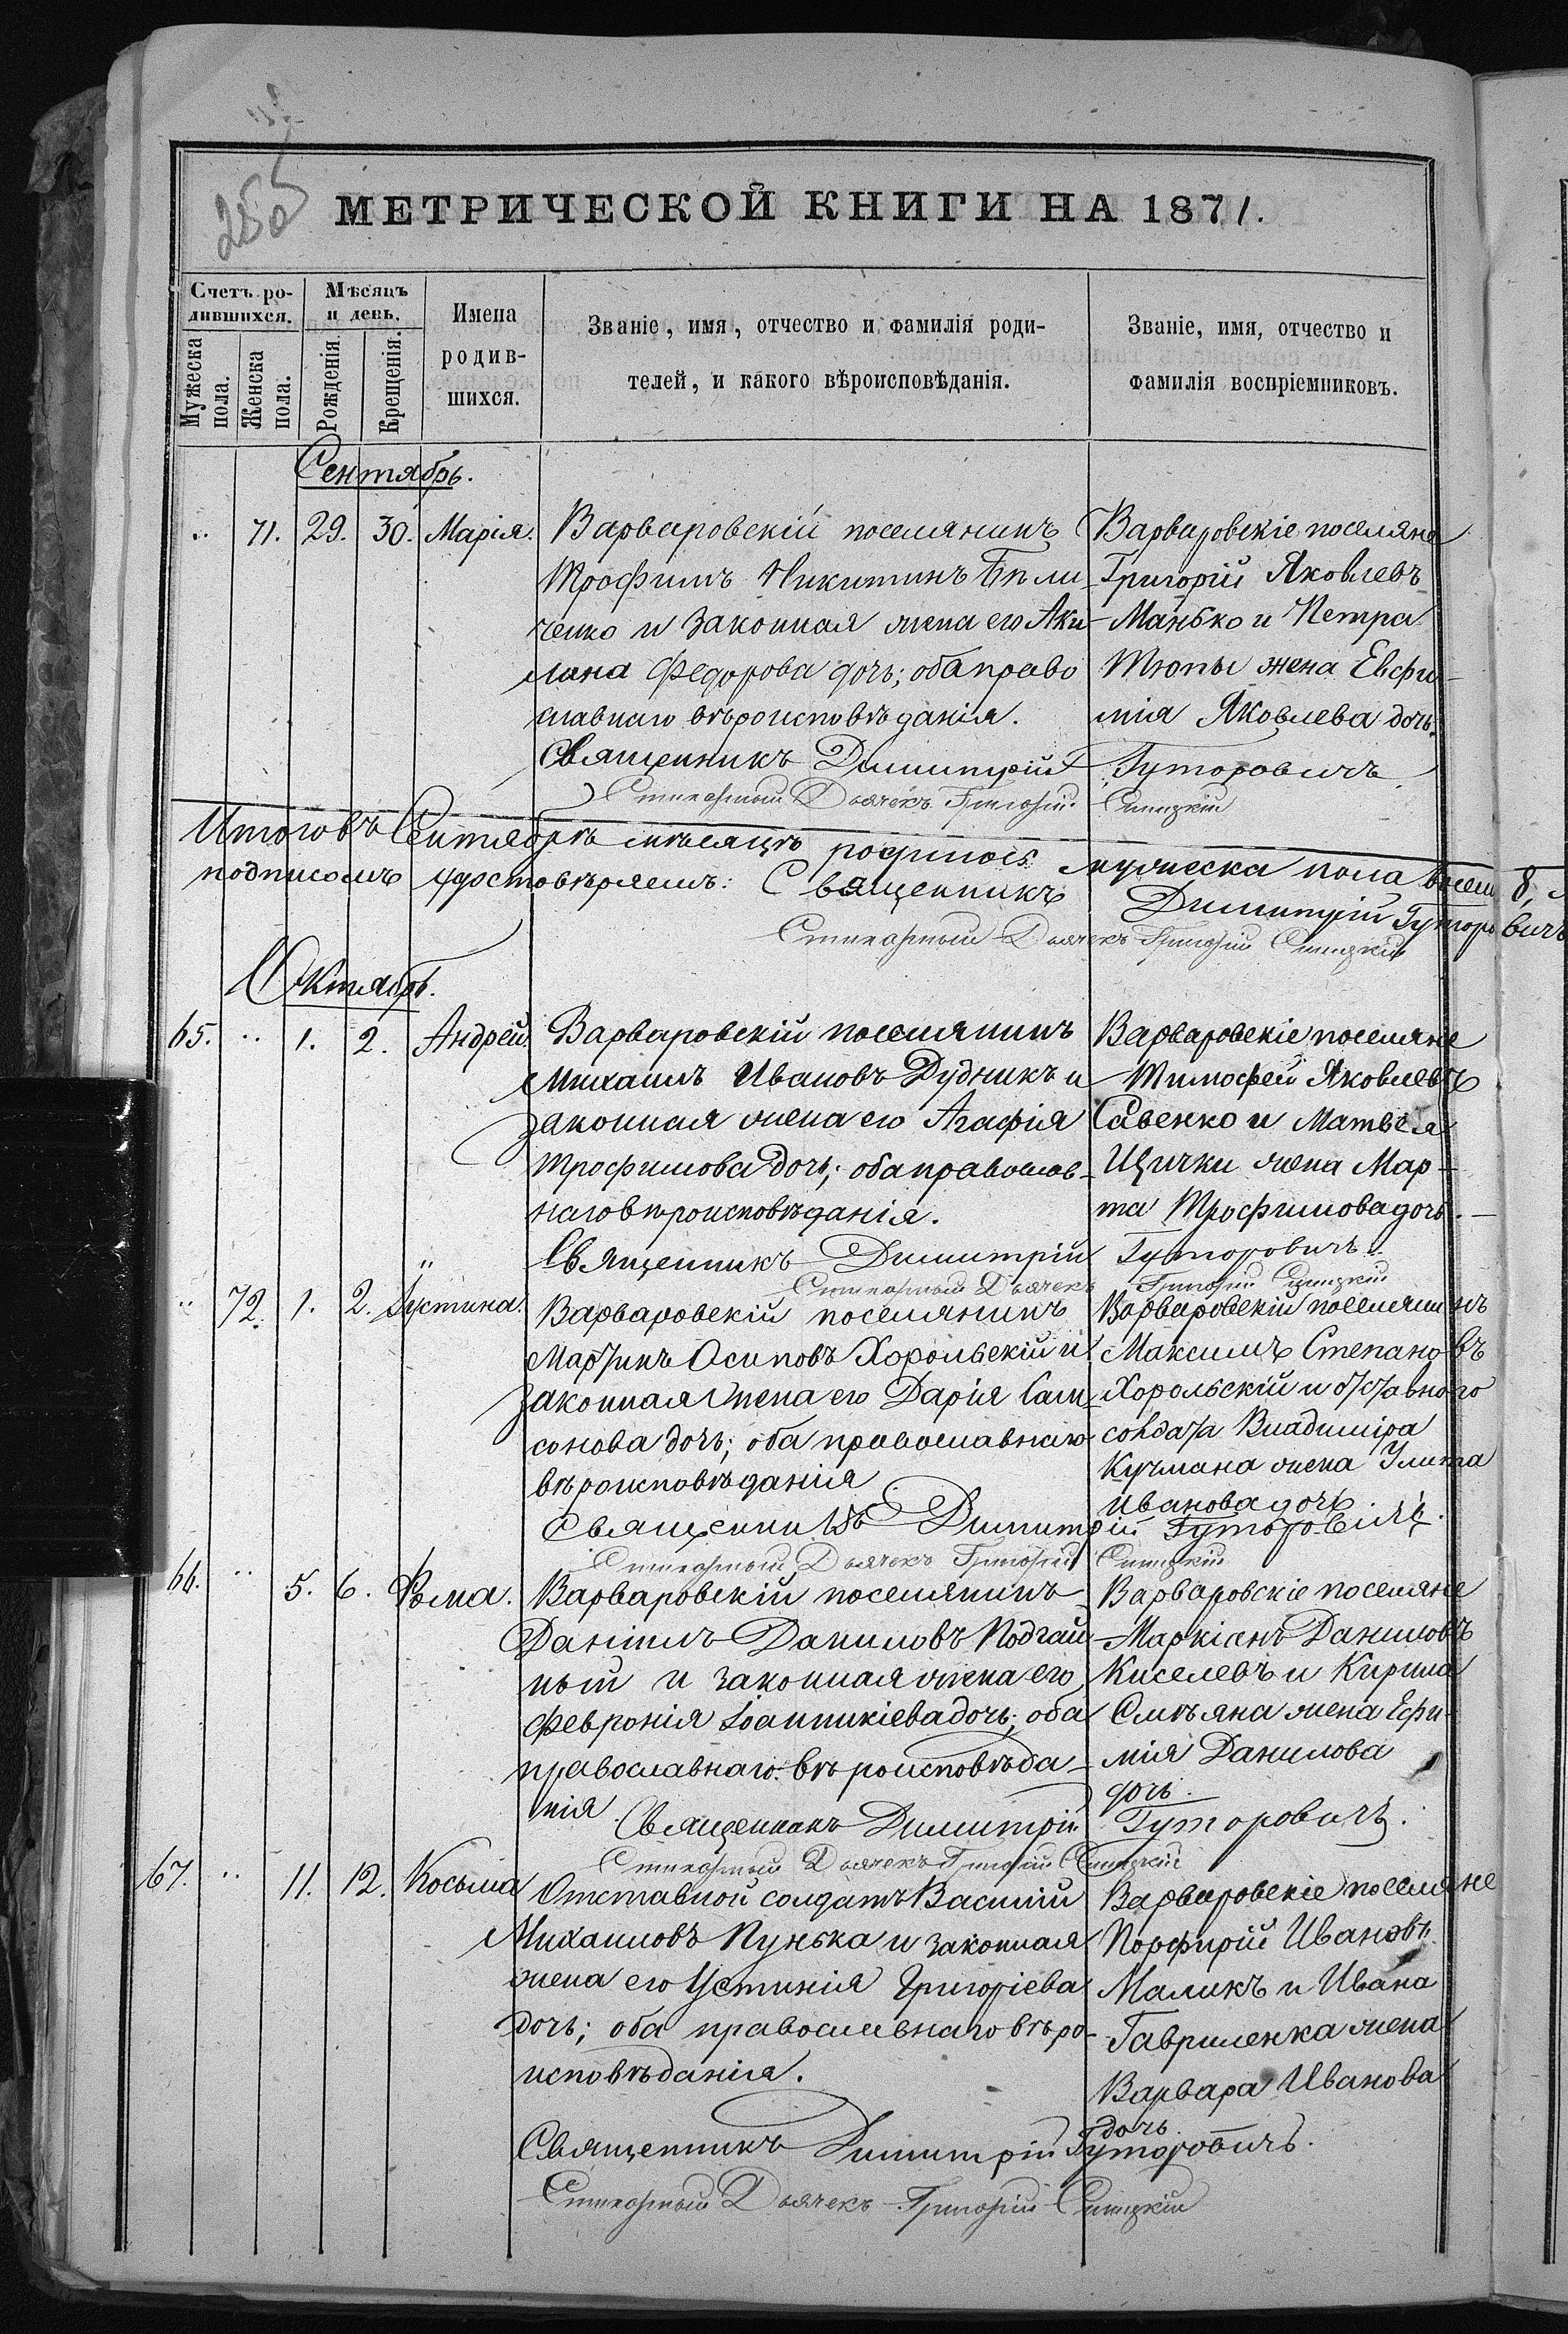 255
МЕТРИЧЕСКОЙ КНИГИ НА 1871.
Счетъ ро-
дившихся.
Мѣсяцъ
и день.
Мужеска
пола.
Женска
пола.
Рожденія.
Крещенія.
Имена
родив-
шихся.
Званіе, имя, отчество и фамилія роди-
телей, и какого вѣроисповѣданія.
Званіе, имя, отчество и
фамилія воспріемниковъ.
Сентябрь.
.. 71. 29. 30. Марія.
Варваровскій поселянинъ
Трофимъ Никитинъ Бѣли
ченко и законная жена его Аки
лина Федорова дочь; оба право
славнаго вѣроисповѣданія.
Варваровскіе поселяне
Григорій Яковлевъ
Манько и Петра
Тюпы жена Евфи-
мія Яковлева дочь.
Священникъ Димитрій Гуторовичъ
Стихарный Дьячекъ Григорій
Итого въ Сентябрѣ мѣсяцѣ родилось мужеска пола восемь 8,
подписомъ удостовѣряемъ: Священникъ Димитрій Гуторовичъ
Стихарный Дьячекъ Григорій
Октябрь.
65. .. 1. 2. Андрей.
Варваровскій поселянинъ
Михаилъ Ивановъ Дудникъ и
законная жена его Агафія
Трофимова дочь; оба православ-
наго вѣроисповѣданія.
Варваровскіе поселяне
Тимофей Яковлевъ
Савенко и Матвѣя
Щички жена Мар-
та Трофимова дочь.
Священникъ Димитрій Гуторовичъ.
Стихарный Дьячекъ Григорій
.. 72. 1. 2. Іустина.
Варваровскій поселянинъ
Мартинъ Осиповъ Хорольскій и
законная жена его Дарія Сам
сонова дочь; оба православнаго
вѣроисповѣданія
Варваровскій поселянинъ
Максимъ Степановъ
Хорольскій и отставного
солдата Владиміра
Кучмана жена Улита
Иванова дочь.
Священникъ Димитрій Гуторовичъ.
Стихарный Дьячекъ Григорій
66. .. 5. 6. Фома.
Варваровскій поселянинъ
Даніилъ Даниловъ Подгай
ный и законная жена его
Февронія Іоанникіева дочь; оба
православнаго вѣроисповѣда-
нія
Варваровскіе поселяне
Маркіанъ Даниловъ
Киселевъ и Кирила
Смѣяна жена Ефи-
мія Данилова
дочь.
Священникъ Димитрій Гуторовичъ.
Стихарный Дьячекъ Григорій
67. .. 11. 12. Косьма
Отставной солдатъ Василій
Михаиловъ Пунька и законная
жена его Устинія Григоріева
дочь; оба православнаго вѣро-
исповѣданія.
Варваровскіе поселяне
Порфирій Ивановъ
Маликъ и Ивана
Гавриленка жена
Варвара Иванова
дочь.
Священникъ Димитрій Гуторовичъ.
Стихарный Дьячекъ Григорій